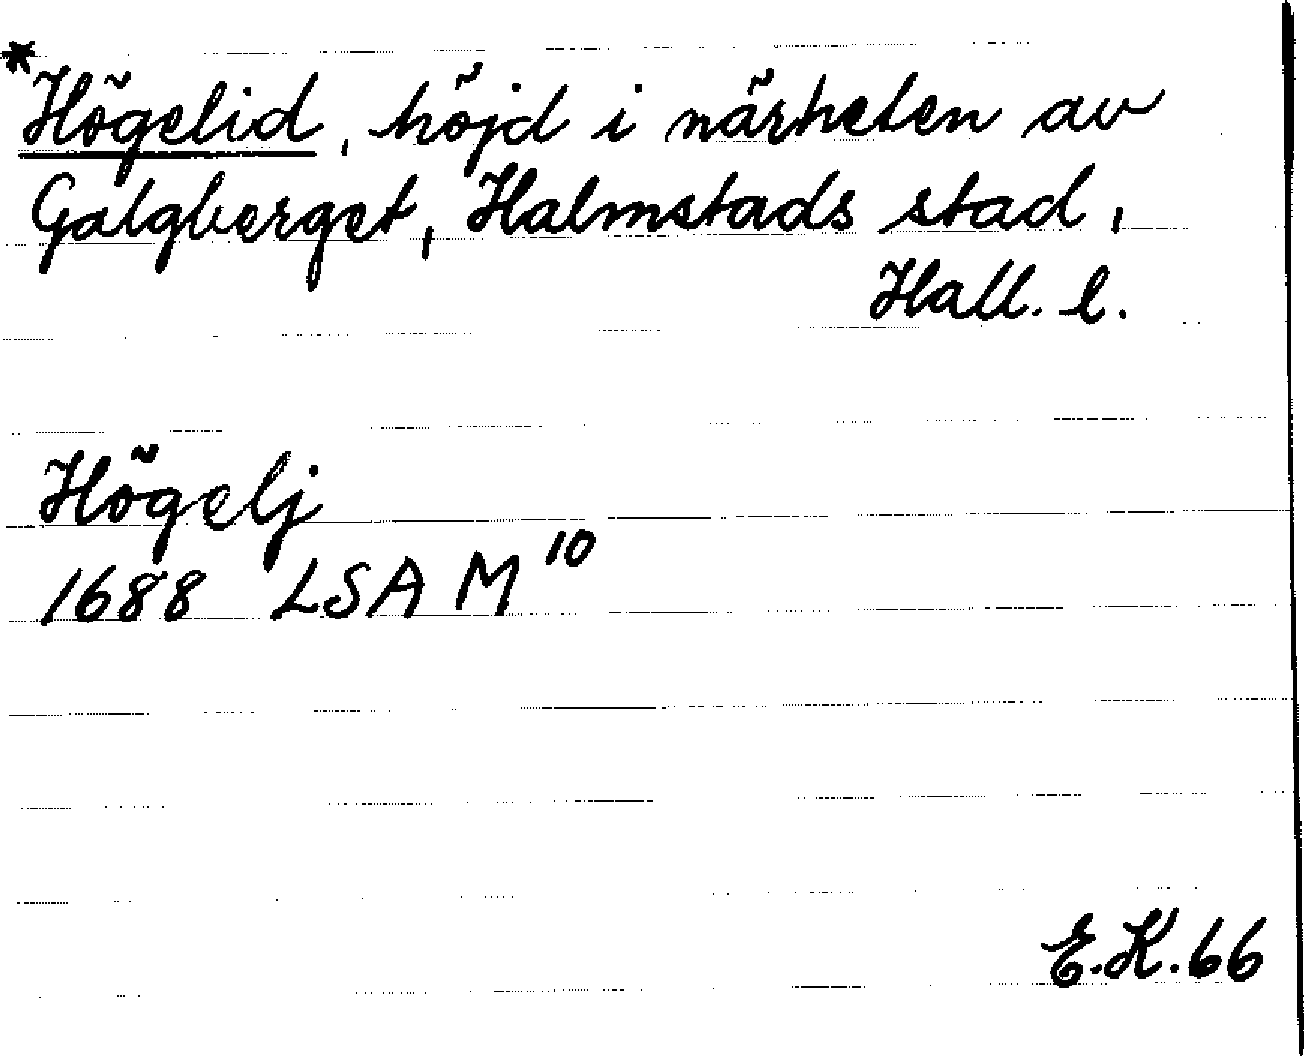 *Högelid, höjd i närheten av
Galgberget, Halmstads stad,
Hall. l.
Högelj
1688 LSA M¹⁰
E.K.66